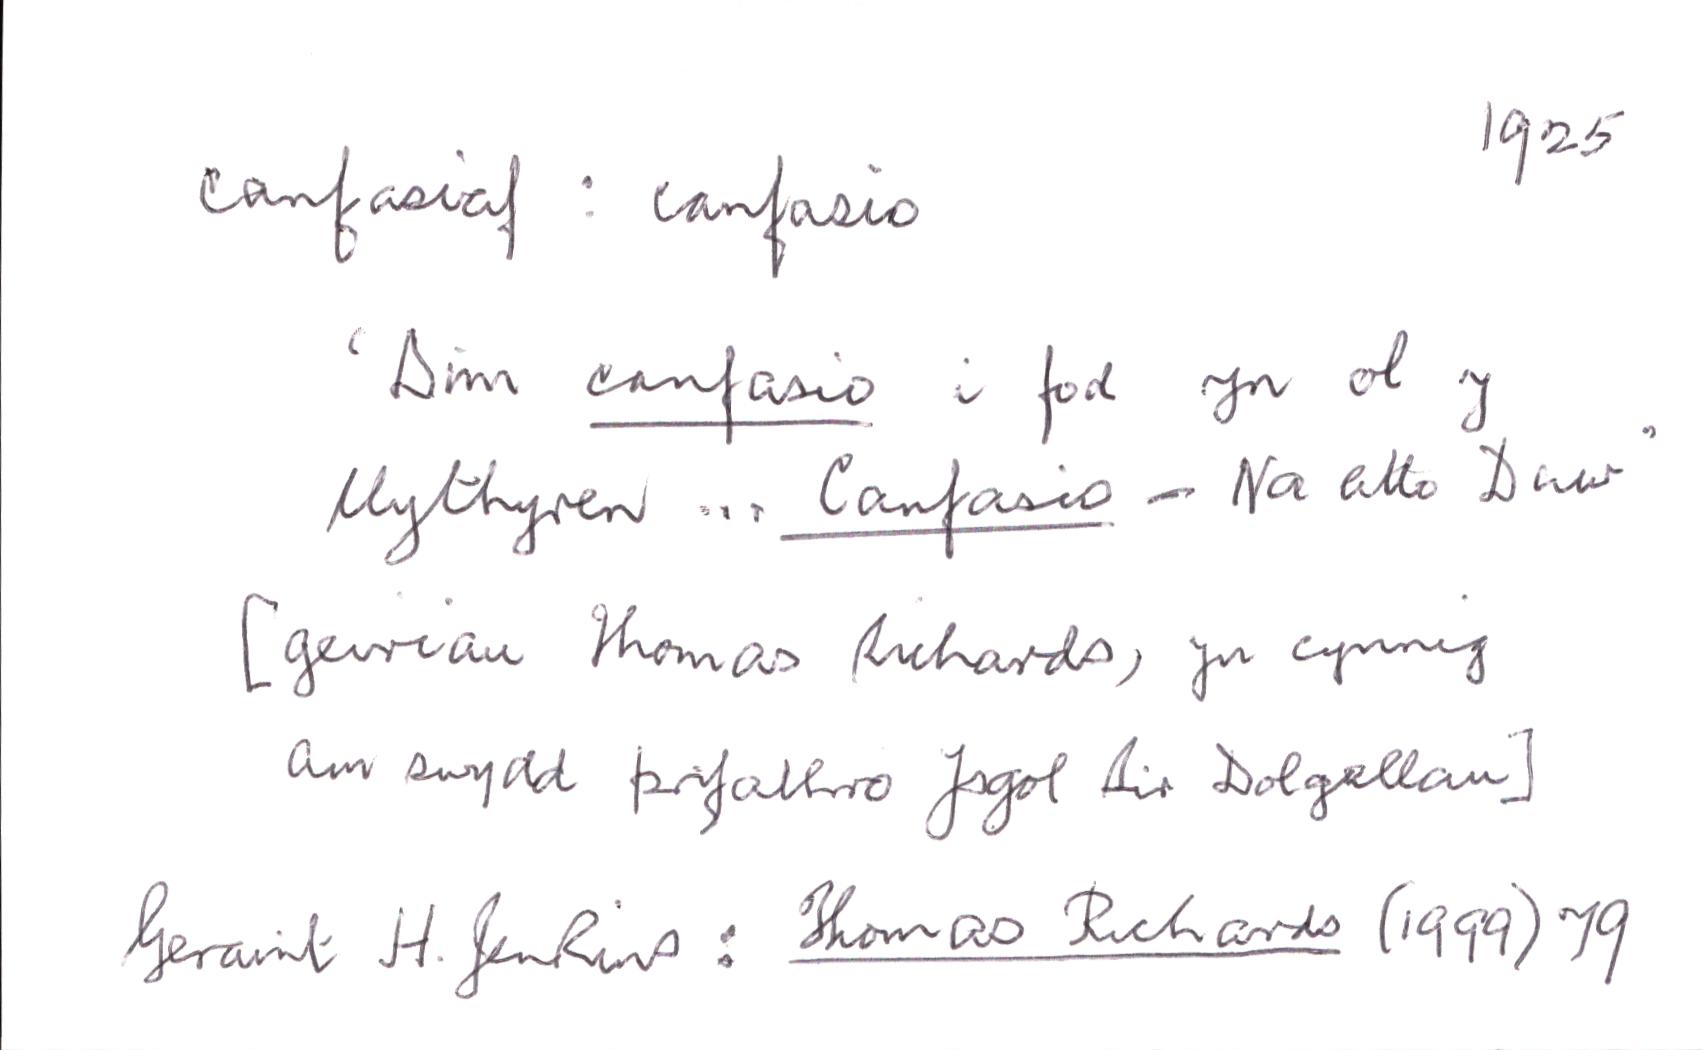 1925
canfasiaf : canfasio
‘Dim canfasio i fod yn ol y
llythyren ... Canfasio – Na atto Duw”
[geiriau Thomas Richards, yn cynnig
am swydd prifathro Ysgol Sir Dolgellau]
Geraint H. Jenkins : Thomas Richards (1999) 79